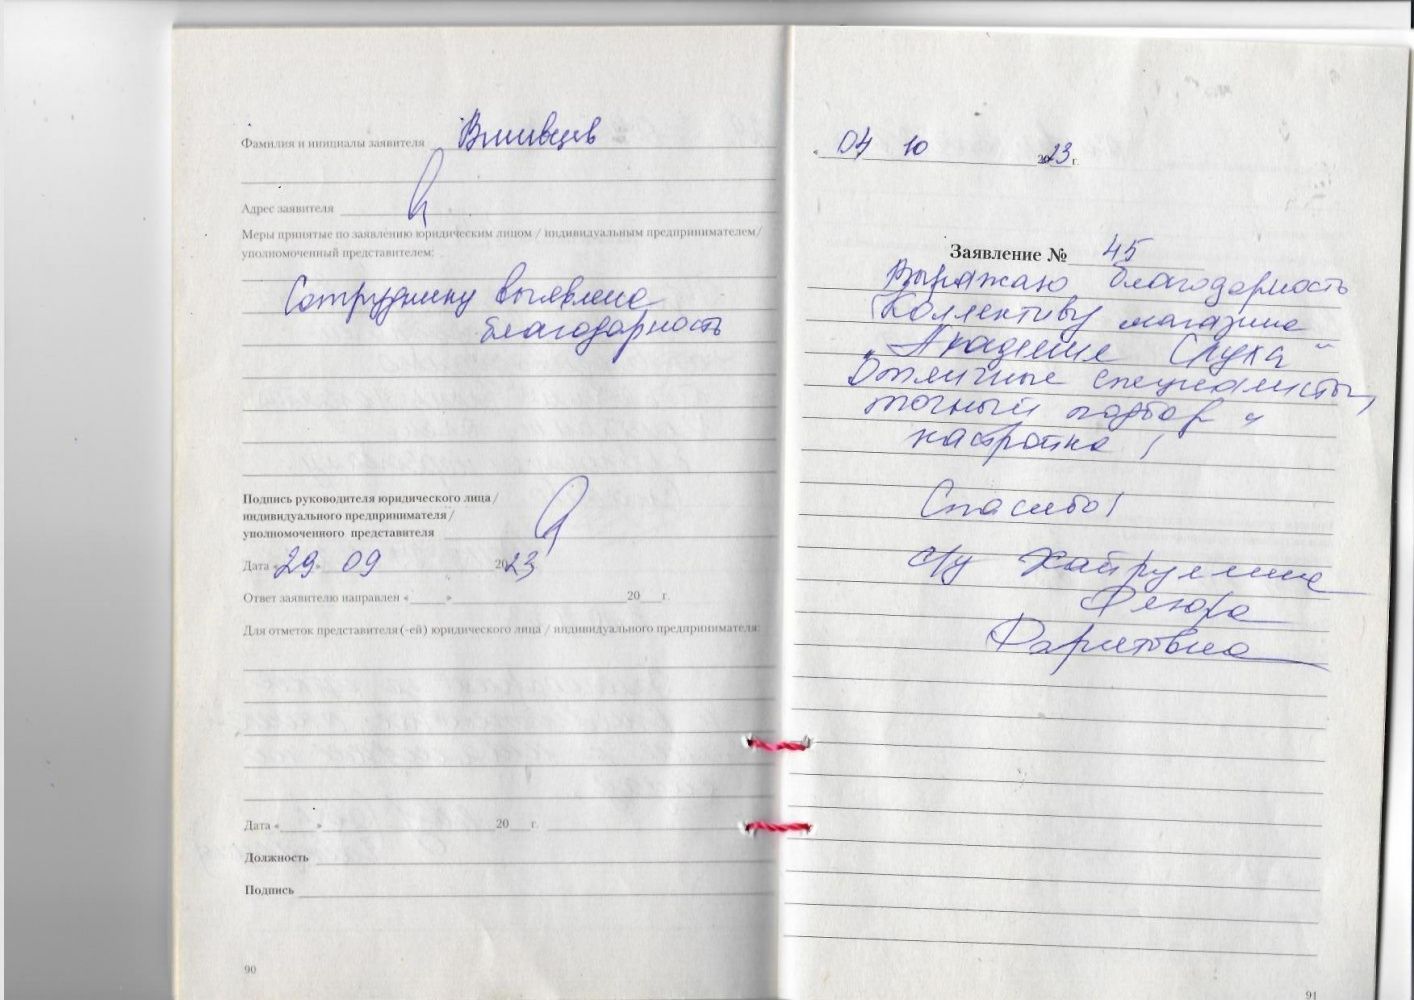 Фамилия и инициалы заявителя Вшивцев
Адрес заявителя
Меры принятые по заявлению юридическим лицом / индивидуальным предпринимателем/
уполномоченный представителем:
Сотруднику вы
благодарность
Подпись руководителя юридического лица /
индивидуального предпринимателя /
уполномоченного представителя
Дата «29» 09 2023
Ответ заявителю направлен «____» 20___г.
Для отметок представителя (-ей) юридического лица / индивидуального предпринимателя:
Дата «____» 20___г.
Должность
Подпись
90
« 04 10 2023 г.
Заявление № 45
Выражаю благодарность
Коллективу магазина
"Академия Слуха"
Отличные специалисты,
точный подбор и
настройка!
Спасибо!
с/у Хайруллина
Флюра
Фаритовна
91